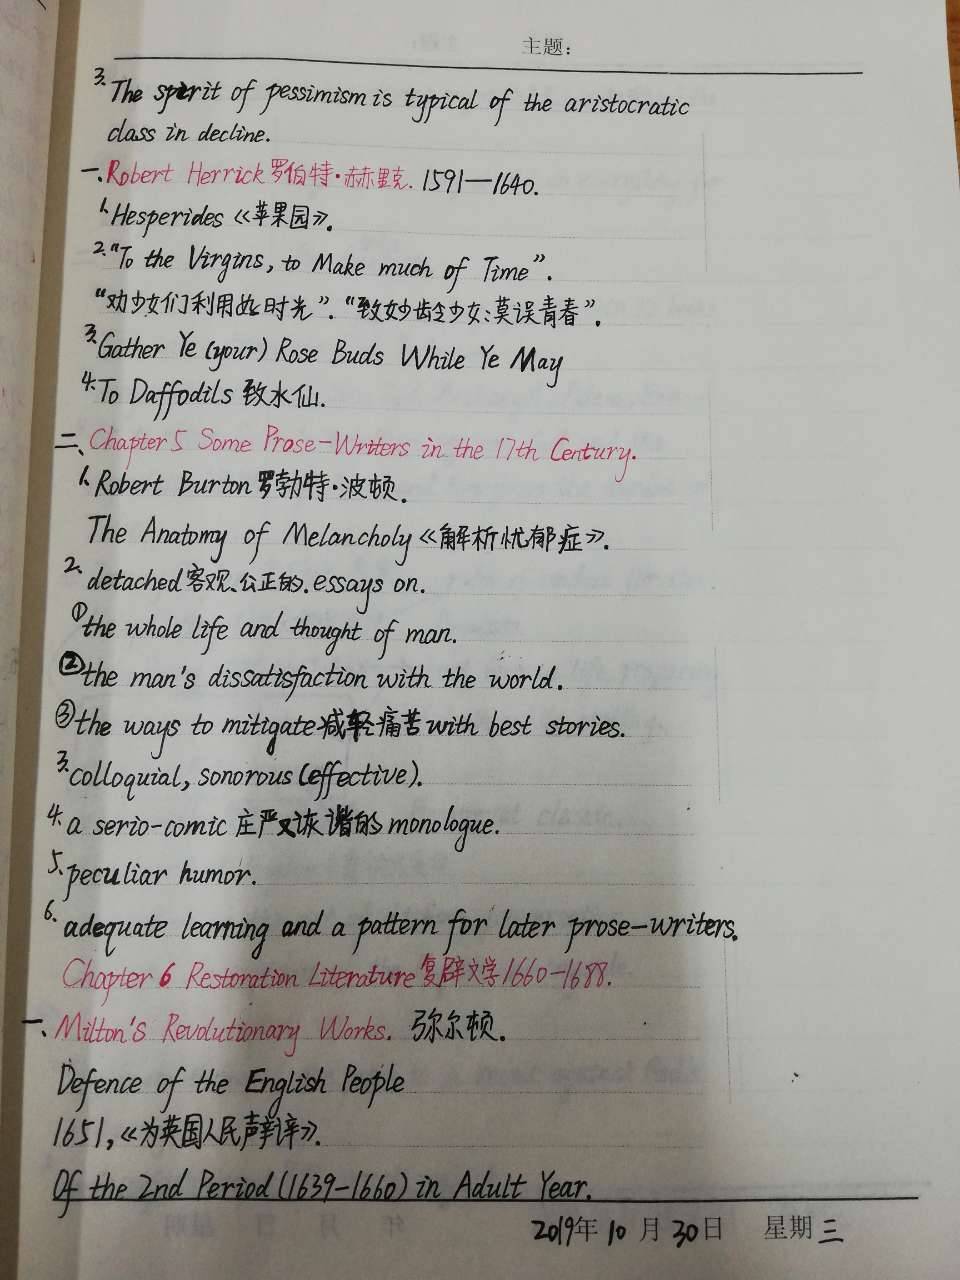 主题:
3. The spirit of pessimism is typical of the aristocratic
class in decline.
一、Robert Herrick 罗伯特·赫里克. 1591—1640.
1. Hesperides《苹果园》.
2. "To the Virgins, to Make much of Time".
"劝少女们利用好时光". "致妙龄少女:莫误青春".
3. Gather Ye (your) Rose Buds While Ye May
4. To Daffodils 致水仙.
二、Chapter 5 Some Prose-Writers in the 17th Century.
1. Robert Burton 罗勃特·波顿.
The Anatomy of Melancholy《解析忧郁症》.
2. detached 客观、公正的. essays on.
① the whole life and thought of man.
② the man's dissatisfaction with the world.
③ the ways to mitigate 减轻痛苦 with best stories.
3. colloquial, sonorous (effective).
4. a serio-comic 庄严又诙谐的 monologue.
5. peculiar humor.
6. adequate learning and a pattern for later prose-writers.
Chapter 6 Restoration Literature 复辟文学 1660-1688.
一、Milton's Revolutionary Works. 弥尔顿.
Defence of the English People
1651,《为英国人民声辩》.
Of the 2nd Period (1639-1660) in Adult Year.
2019年 10 月 30 日 星期 三